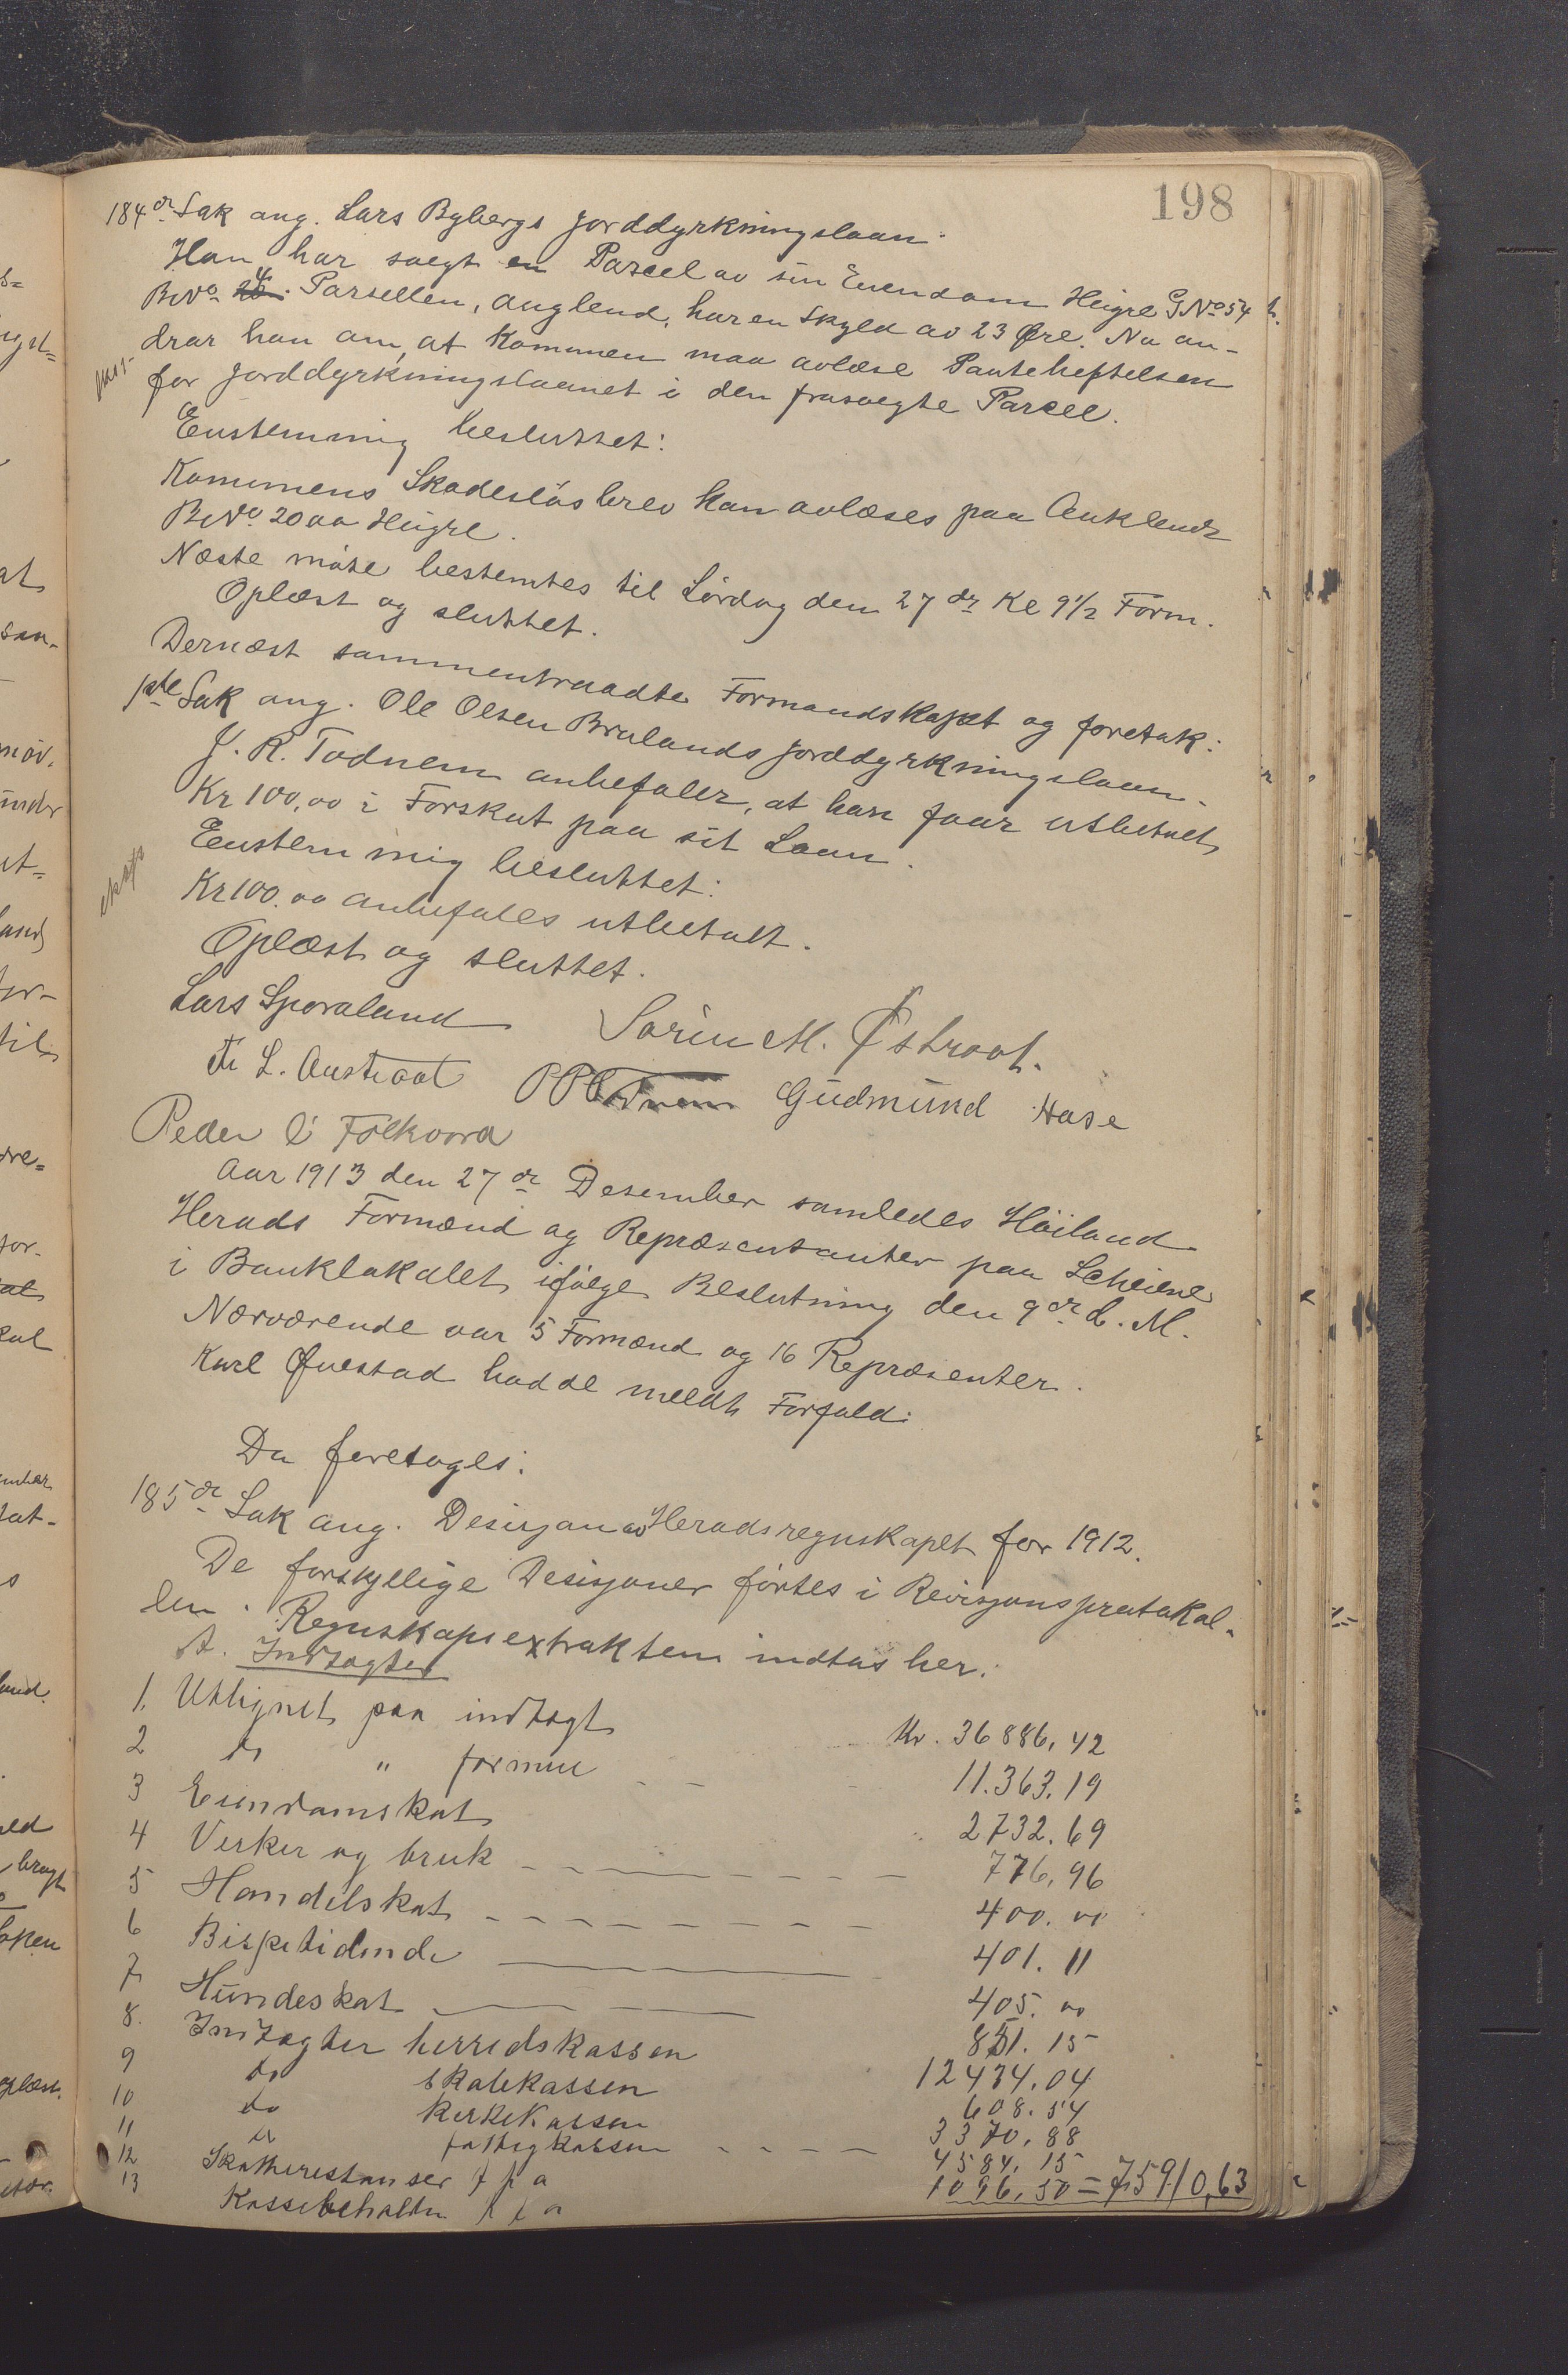 198
184de Sak ang. Lars Bybergs Jorddyrkningslaan.
Han har solgt en Parcel av sin Eiendom Heigre GNo 54
BrNo 4. Parsellen, Auglend, har en Skyld av 23 Øre. Nu an-
drar han om, at Kommunen maa avlæse Panteheftelsen
for Jorddyrkningslaanet i den frasolgte Parcel.
Enstemmig besluttet:
Kommunens Skadesløsbrev kan avlæses paa Auklend
BrNo 20 av Heigre.
Næste møte bestemtes til Lørdag den 27de Kl 9 1/2 Form.
Oplæst og sluttet.
Dernæst sammentraadte Formandskapet og foretok:
1ste Sak ang. Ole Olsen Brualands Jorddyrkningslaan.
J. R. Todnem anbefaler, at han faar utbetalt
Kr 100,00 i Forskut paa sit Laan.
eksp
Enstemmig besluttet:
Kr 100.00 anbefales utbetalt.
Oplæst og sluttet.
Lars Sporaland Sørin M. Østraat.
L. Austraat Gudmund Hase
Peder L Folkvord
Aar 1913 den 27de Desember samledes Høiland
Herads Formænd og Repræsentanter paa Scheiene
i Banklokalet ifølge Beslutning den 9de d. M.
Nærværende var 5 Formænd og 16 Repræsenter.
Karl Øvestad hadde meldt Forfald.
Da foretoges:
185de Sak ang. Desisjon av Heradsregnskapet for 1912.
De forskjellige Desisjoner førtes i Revisjonsprotokol-
len. Regnskapsextrakten indtas her.
A. Indtægter
1. Utlignet paa indtægt Kr. 36886,42
2 do " formue 11.363.19
3 Eiendomskat 2732.69
4 Verker og bruk 776,96
5 Handelskat 400.00
6 Bispetidende 401.11
7 Hundeskat 405.00
8. Indtægter herredskassen 851.15
9 do skolekassen 12434.04
10 do kirkekassen 608.54
11 do fattigkassen 3370,88
12 Skatterestanser f f a 4584,15
13 Kassebeholdn f f a 1096,50 = 75910,63